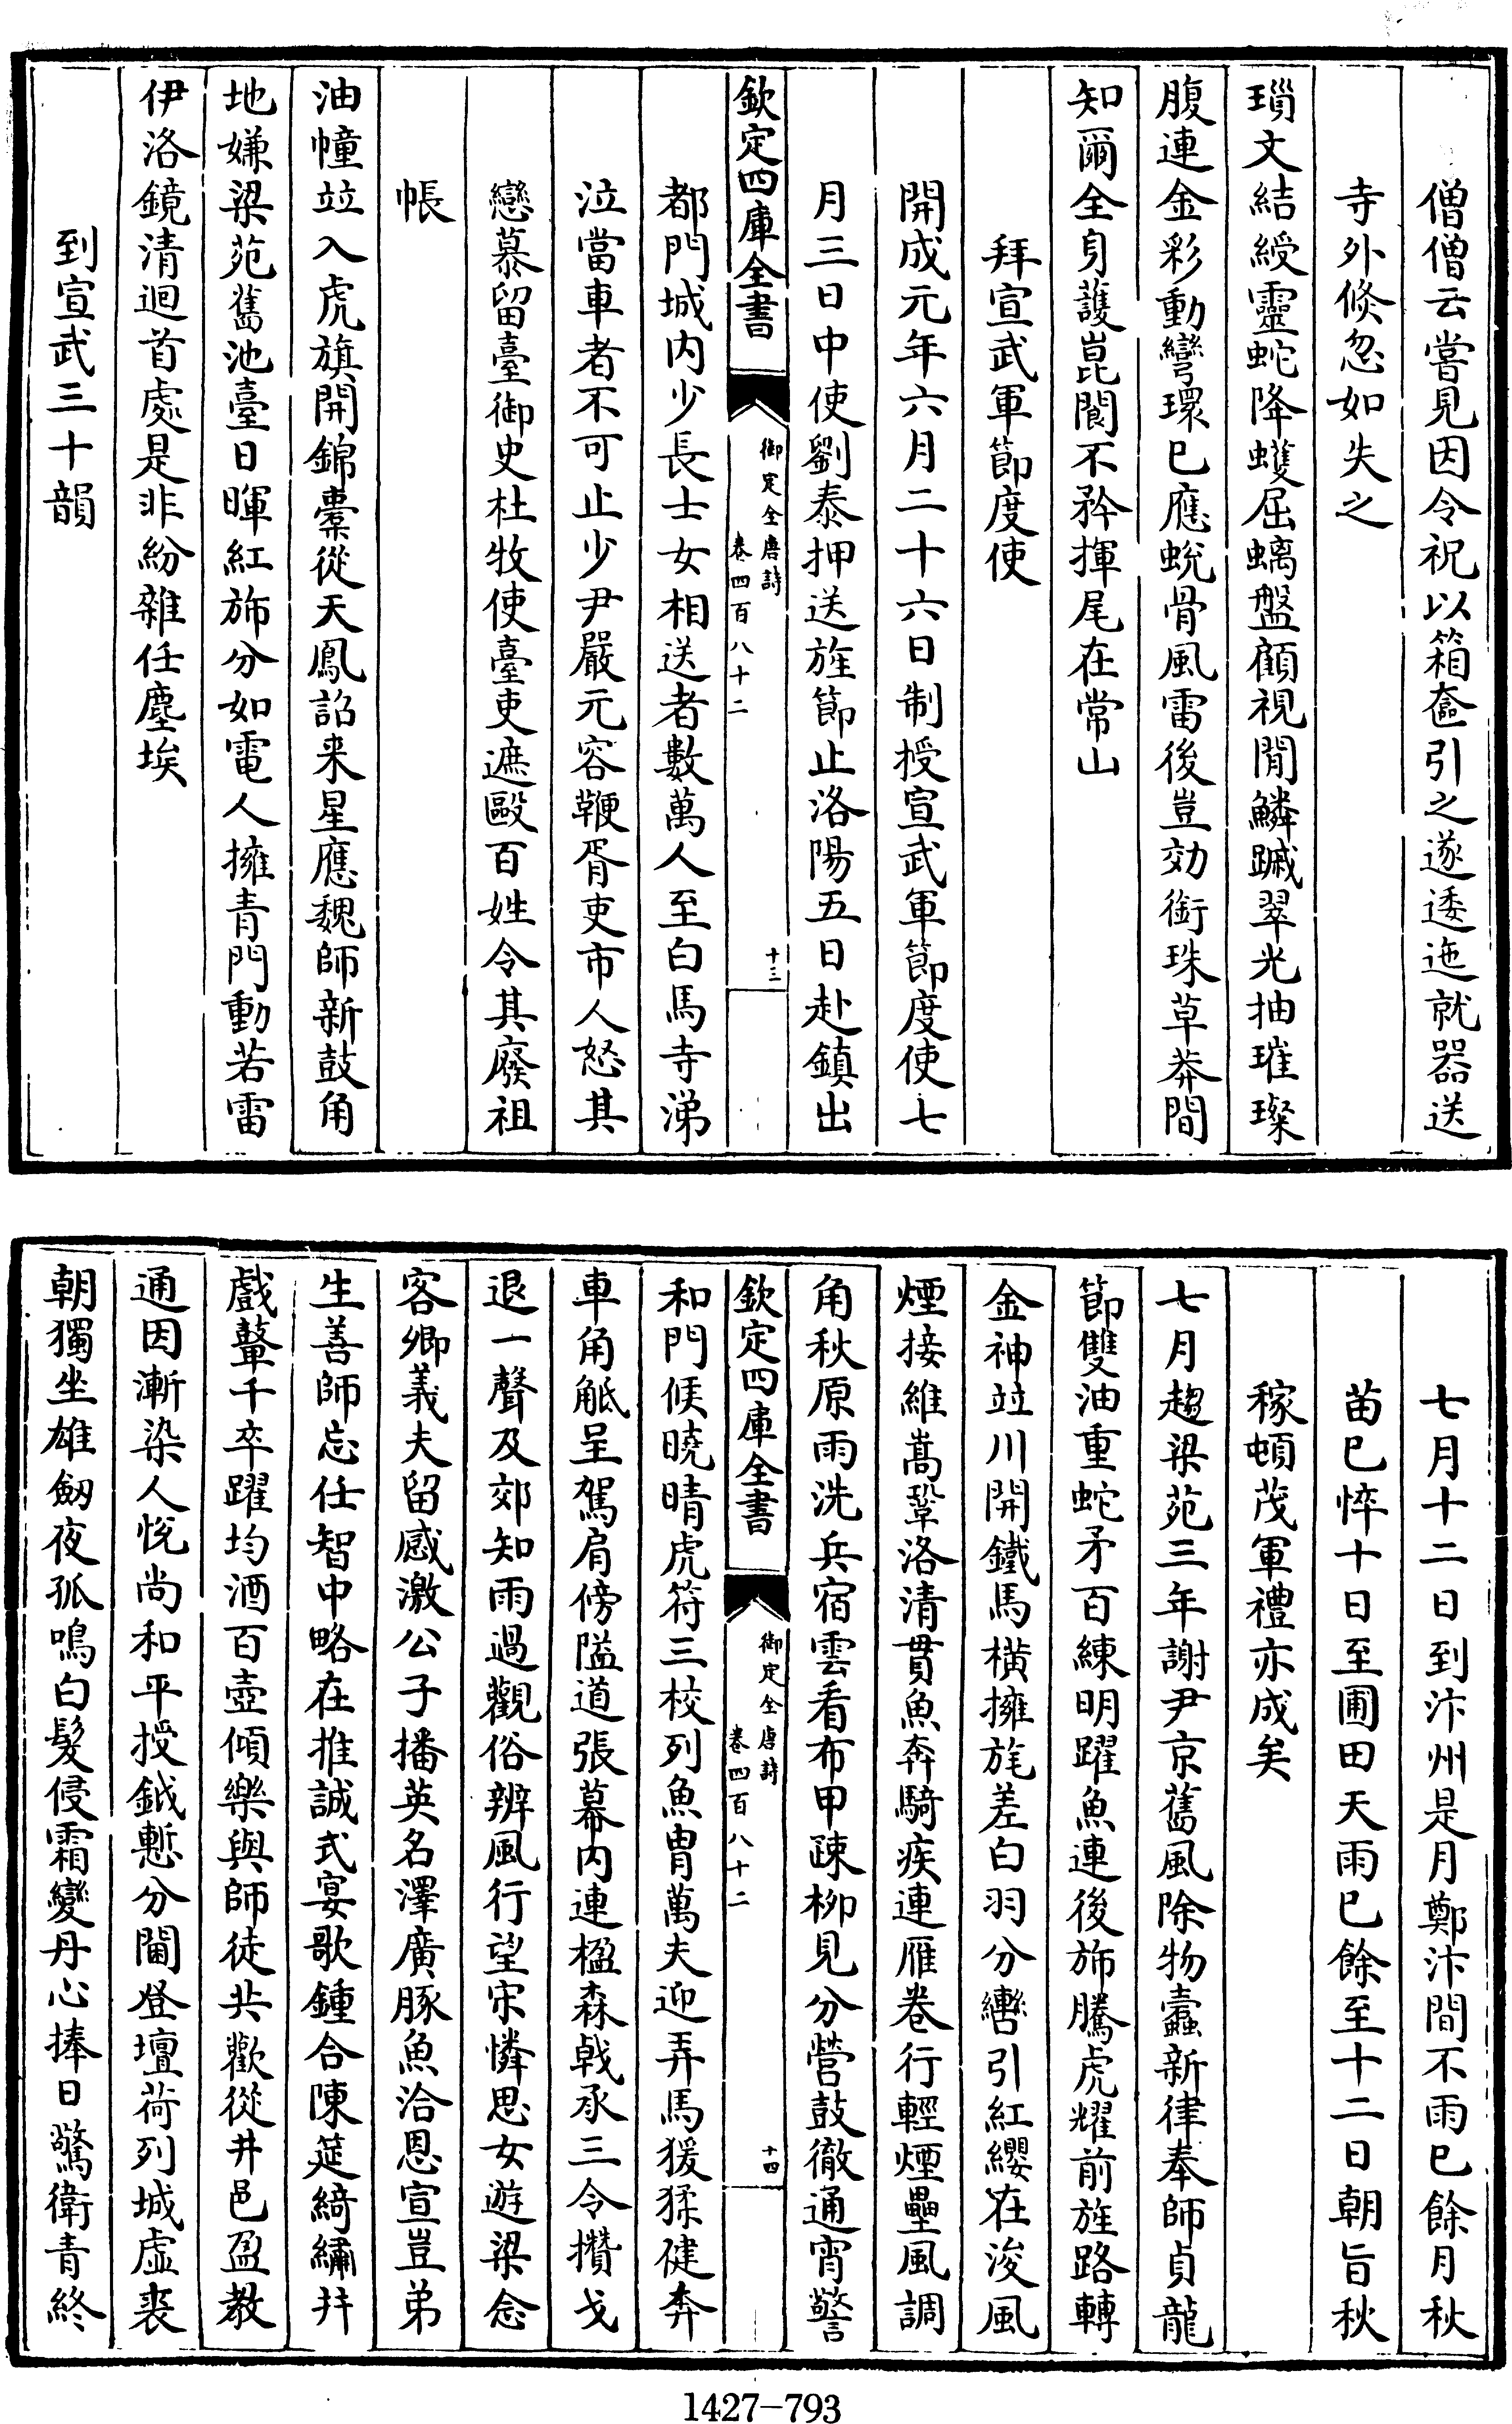 僧僧云嘗見因令祝以箱奩引之遂逶迤就器送
寺外倐忽如失之
瑣文結綬靈蛇降蠖屈螭盤顧視閒鱗蹙翠光抽璀璨
腹連金彩動彎環已應蛻骨風雷後豈効銜珠草莽間
知爾全身護崑閬不矜揮尾在常山
拜宣武軍節度使
開成元年六月二十六日制授宣武軍節度使七
月三日中使劉泰押送旌節止洛陽五日赴鎮出
欽定四庫全書
御定全唐詩
卷四百八十二
十三
都門城内少長士女相送者數萬人至白馬寺涕
泣當車者不可止少尹嚴元容鞭胥吏市人怒其
戀慕留臺御史杜牧使臺吏遮毆百姓令其廢祖
帳
油幢竝入虎旗開錦櫜從天鳳詔来星應魏師新鼓角
地嫌梁苑舊池臺日暉紅斾分如電人擁青門動若雷
伊洛鏡清迴首處是非紛雜任塵埃
到宣武三十韻
七月十二日到汴州是月鄭汴間不雨已餘月秋
苗已悴十日至圃田天雨已餘至十二日朝旨秋
稼頓茂軍禮亦成矣
七月趨梁苑三年謝尹京舊風除物蠹新律奉師貞龍
節雙油重蛇矛百練明躍魚連後斾騰虎耀前旌路轉
金神竝川開鐵馬橫擁旄差白羽分轡引紅纓在浚風
煙接維嵩鞏洛清貫魚奔騎疾連雁卷行輕煙壘風調
角秋原雨洗兵宿雲看布甲疎柳見分營鼓徹通宵警
欽定四庫全書
御定全唐詩
卷四百八十二
十四
和門候曉晴虎符三校列魚胄萬夫迎弄馬猨猱健奔
車角觝呈駕肩傍隘道張幕内連楹森戟承三令攢戈
退一聲及郊知雨過觀俗辨風行望宋憐思女遊梁念
客卿義夫留感激公子播英名澤廣豚魚洽恩宣豈弟
生善師忘任智中略在推誠式宴歌鍾合陳筵綺繡幷
戲鼙千卒躍均酒百壺傾樂與師徒共歡從井邑盈教
通因漸染人悅尚和平授鉞慙分閫登壇荷列城虛裘
朝獨坐雄劒夜孤鳴白髮侵霜變丹心捧日驚衛青終
1427-793